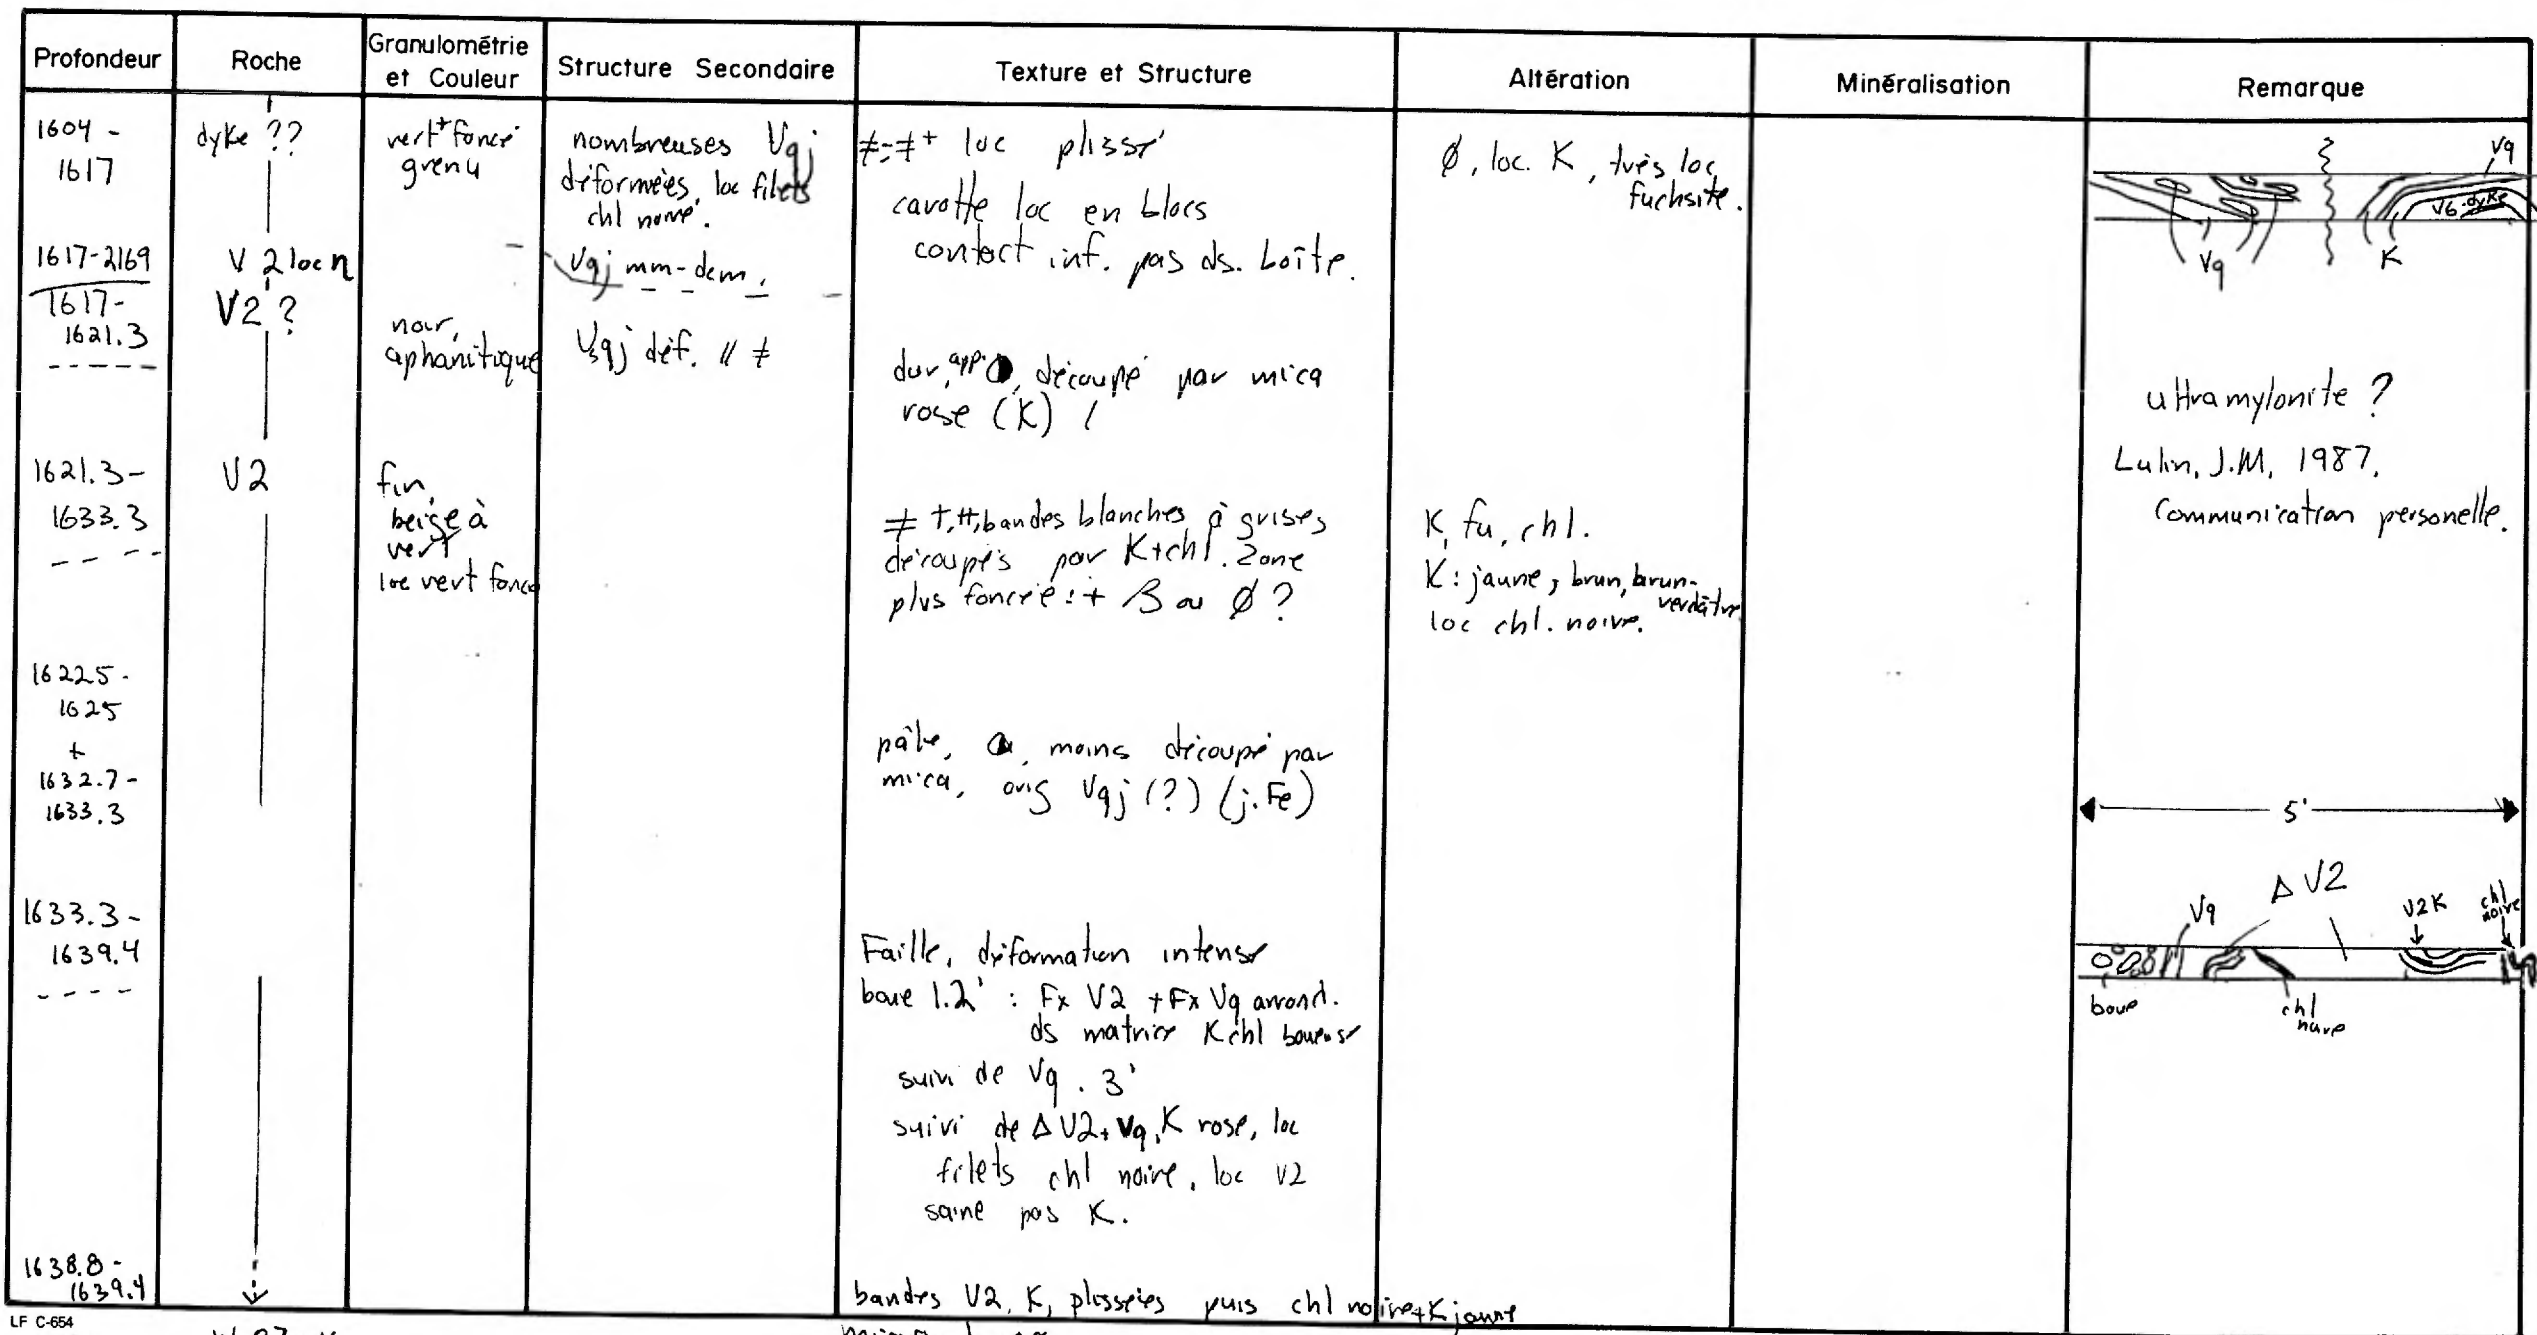 Profondeur
Roche
Granulométrie
et Couleur
Structure Secondaire
Texture et Structure
Altération
Minéralisation
Remarque
1604 -
1617
dyke ??
vert+ foncé
grenu
nombreuses Vqj
déformées, loc filets
chl noire.
≠-≠+ loc plissé
carotte loc en blocs
contact inf. pas ds. boîte.
ø, loc. K, très loc
fuchsite.
Vq
V6-dyke
Vq
K
1617-2169
V2 loc
Vqj mm-dcm.
1617-
1621.3
V2 ?
noir,
aphanitique
Vqj déf. // ≠
dur, app. , découpé par mica
rose (K)
ultramylonite ?
Lulin, J.M. 1987.
Communication personelle.
1621.3-
1633.3
V2
fin,
beige à
vert
loc vert foncé
≠ +,++, bandes blanches à grises
découpés par K+chl. Zone
plus foncée : + ß ou ø ?
K, fu, chl.
K : jaune, brun, brun-
verdâtre
loc chl. noire.
1622.5-
1625
+
1632.7-
1633.3
pâle, moins découpé par
mica, orig Vqj (?) (j.Fe)
5'
1633.3-
1639.4
Faille, déformation intense
boue 1.2' : Fx V2 + Fx Vq arrond.
ds matrice K chl boueuse
suivi de Vq .3'
suivi de Δ V2+Vq, K rose, loc
filets chl noire, loc V2
saine pas K.
Vq
Δ V2
V2K
chl
noire
boue
chl
noire
1638.8-
1639.4
bandes V2, K, plissées puis chl noire+K jaune
LF C-654